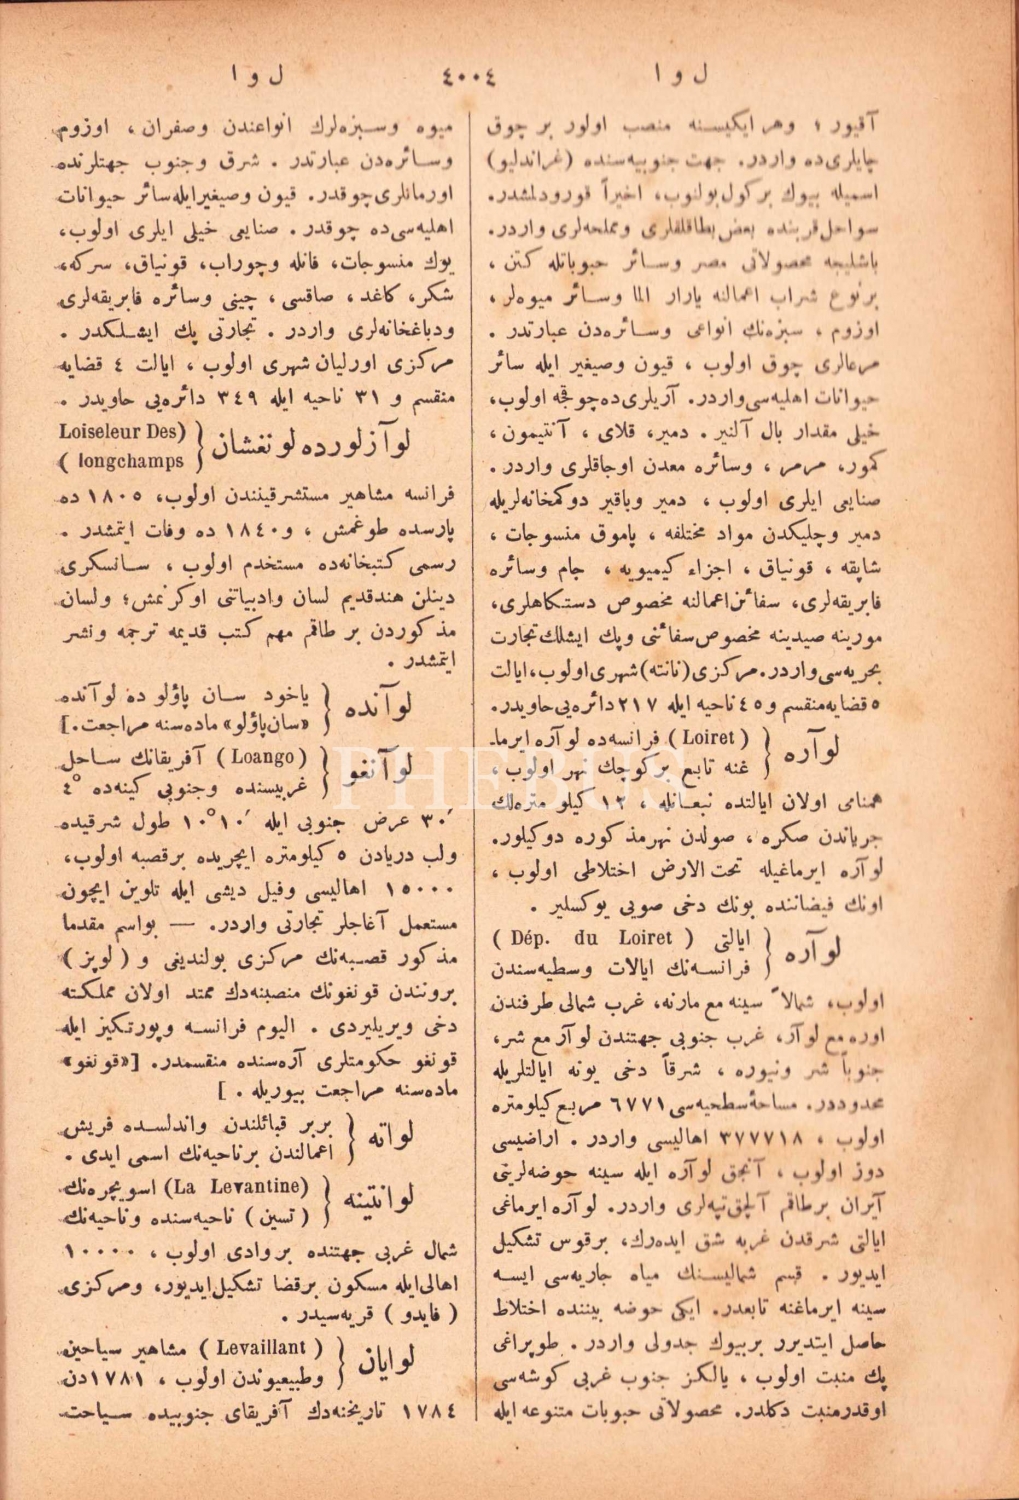 ل و ا
٤٠٠٤
ل و ا
آقیور ؛ وهر ایکیسنه منصب اولور بر چوق
چایلری‌ده واردر. جهت جنوبیه‌سنده (غراندلیو)
اسمیله بیوك بر کول بولنوب، اخیراً قورودلمشدر.
سواحل قربنده بعض بطاقلقلری ومملحه‌لری واردر.
باشلیجه محصولاتی مصر وسائر حبوباتله کتن ،
برنوع شراب اعمالنه یارار الما وسائر میوه‌لر ،
اوزوم ، سبزه‌نك انواعی وسائره‌دن عبارتدر .
مرعالری چوق اولوب ، قیون وصغیر ایله سائر
حیوانات اهلیه‌سی واردر. آریلری‌ده چوقجه اولوب،
خیلی مقدار بال آلنیر . دمیر، قلای ، آنتیمون،
کمور، مرمر ، وسائره معدن اوجاقلری واردر .
صنایعی ایلری اولوب ، دمیر وباقیر دوکمخانه‌لریله
دمیر وچلیکدن مواد مختلفه ، پاموق منسوجات ،
شاپقه ، قونیاق ، اجزاء کیمیویه ، جام وسائره
فابریقه‌لری، سفائن اعمالنه مخصوص دستکاهلری،
مورینه صیدینه مخصوص سفائنی وپك ایشلك تجارت
بحریه‌سی واردر. مرکزی (نانته) شهری اولوب، ایالت
٥ قضایه منقسم و ٤٥ ناحیه ایله ٢١٧ دائره‌یی حاویدر.
لوآره { (Loiret) فرانسه‌ده لوآره ایرما-
غنه تابع بر کوچك نهر اولوب ،
همنامی اولان ایالتده نبعانله ، ١٢ کیلو متره‌لك
جریاندن صکره ، صولدن نهر مذکوره دوکیلور.
لوآره ایرماغیله تحت الارض اختلاطی اولوب ،
اونك فیضاننده بونك دخی صویی یوکسلیر .
لوآره { ایالتی ( Dép. du Loiret )
فرانسه‌نك ایالات وسطیه‌سندن
اولوب، شمالاً سینه مع مارنه، غرب شمالی طرفندن
اوره مع لوآر، غرب جنوبی جهتندن لوآر مع شر،
جنوباً شر ونیوره ، شرقاً دخی یونه ایالتلریله
محدوددر. مساحۀ سطحیه‌سی ٦٧٧١ مربع کیلومتره
اولوب ، ٣٧٧٧١٨ اهالیسی واردر . اراضیسی
دوز اولوب ، آنجق لوآره ایله سینه حوضه‌لرینی
آیران برطاقم آلچق تپه‌لری واردر. لوآره ایرماغی
ایالتی شرقدن غربه شق ایده‌رك، برقوس تشکیل
ایدیور . قسم شمالیسنك میاه جاریه‌سی ایسه
سینه ایرماغنه تابعدر. ایکی حوضه بیننده اختلاط
حاصل ایتدیرر بر بیوك جدولی واردر . طوپراغی
پك منبت اولوب ، یالکز جنوب غربی کوشه‌سی
اوقدر منبت دکلدر. محصولاتی حبوبات متنوعه ایله
میوه وسبزه‌لرك انواعندن وصفران ، اوزوم
وسائره‌دن عبارتدر . شرق وجنوب جهتلرنده
اورمانلری چوقدر. قیون وصیغیر ایله سائر حیوانات
اهلیه‌سی ده چوقدر . صنایعی خیلی ایلری اولوب،
یوك منسوجات، فانله وچوراب، قونیاق، سرکه،
شکر، کاغد ، صاقسی ، چینی وسائره فابریقه‌لری
ودباغخانه‌لری واردر . تجارتی پك ایشلکدر .
مرکزی اورلیان شهری اولوب ، ایالت ٤ قضایه
منقسم و ٣١ ناحیه ایله ٣٤٩ دائره‌یی حاویدر .
لوآزلورده لونغشان { (Loiseleur Des
longchamps )
فرانسه مشاهیر مستشرقیندن اولوب، ١٨٠٥ ده
پارسده طوغمش ، و ١٨٤٠ ده وفات ایتمشدر .
رسمی کتبخانه‌ده مستخدم اولوب ، سانسکری
دینلن هند قدیم لسان وادبیاتنی اوکرنمش؛ ولسان
مذکوردن بر طاقم مهم کتب قدیمه ترجمه ونشر
ایتمشدر .
لوآنده { یاخود سان پاؤلو ده لوآنده
«سان پاؤلو» ماده‌سنه مراجعت.]
لوآنغو { (Loango) آفریقانك ساحل
غربیسنده وجنوبی کینه‌ده ٤°
٣٠′ عرض جنوبی ایله ١٠′ ١٠° طول شرقیده
ولب دریادن ٥ کیلومتره ایچریده برقصبه اولوب،
١٥٠٠٠ اهالیسی وفیل دیشی ایله تلوین ایچون
مستعمل آغاجلر تجارتی واردر. — بواسم مقدما
مذکور قصبه‌نك مرکزی بولندیغی و ( لوپز )
برونندن قونغونك منصبنه‌دك ممتد اولان مملکته
دخی ویریلیردی . الیوم فرانسه وپورتکیز ایله
قونغو حکومتلری آره‌سنده منقسمدر. [«قونغو»
ماده‌سنه مراجعت بیوریله . ]
لواته { بربر قبائلندن واندلسده فریش
اعمالندن برناحیه‌نك اسمی ایدی .
لوانتینه { (La Levantine) اسویچره‌نك
( تسین ) ناحیه‌سنده وناحیه‌نك
شمال غربی جهتنده بر وادی اولوب ، ١٠٠٠٠
اهالی ایله مسکون برقضا تشکیل ایدیور، ومرکزی
( فایدو ) قریه‌سیدر .
لوایان { ( Levaillant ) مشاهیر سیاحین
وطبیعیوندن اولوب ، ١٧٨١ دن
١٧٨٤ تاریخنه‌دك آفریقای جنوبیده سیاحت
PHEBUS